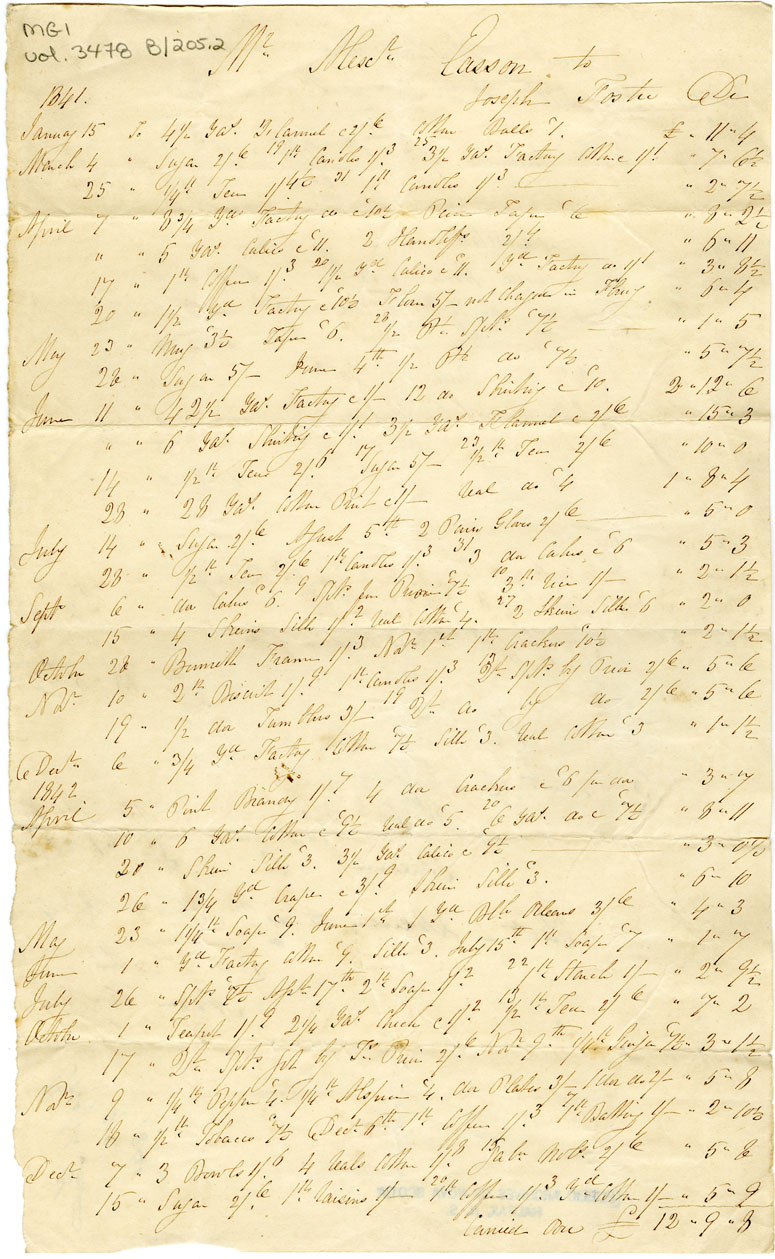 MG1
vol. 3478 B/205.2
Mr Alexdr Casson to
1841. Joseph Foster Dr
January 15 To 4 1/2 Yds Flannel @ 2/6 Cotton Balls "/. £ " 11 " 4
March 4 " Sugar 2/6 19 1 lb Candles 1/3 25 3 1/2 Yds Factory Cotton @ 1/1 " 7 " 6 1/2
25 " 1/4 lb Tea 1/4 1/2 31 1 lb Candles 1/3 " 2 " 7 1/2
April 7 " 8 3/4 Yds Factory do @ 10 1/2 Tape 6 " 8 " 2 1/2
" " 5 Yds Calico @ 11. 2 Handkfs 2/4 " 6 " 11
17 " 1 lb Coffee 1/3 20 1/2 Yd Calico @ 11. Yd Factory do 1/1 " 3 " 8 1/2
20 " 1 1/2 Yd Factory @ 10 1/2 Flour 5/- not charged in " 6 " 4
May 23 " Mug 3 1/2 Tape 6. 28 1/2 Pt Spts 7 1/2 " 1 " 5
28 " Sugar 5/- June 4th 1/2 Pt do 7 1/2 " 5 " 7 1/2
June 11 " 42 1/2 Yds Factory @ 1/- 12 do Shirting @ 10. 2 " 12 " 6
" " 6 Yds Shirting @ 1/1 3 1/2 Yds Flannel @ 2/6 " 15 " 3
14 " 1/2 lb Tea 2/6 17 Sugar 5/- 23 1/2 lb Tea 2/6 " 10 " 0
28 " 28 Yds Cotton Print @ 1/- Real do 4 1 " 8 " 4
July 14 " Sugar 2/6 August 5th 2 Pair Gloves 2/6 " 5 " 0
28 " 1/2 lb Tea 2/6 1 lb Candles 1/3 31 3 do Cakes @ 6 " 5 " 3
Septr 6 " do Cakes 6. 9 Spts 7 1/2 10 1/- " 2 " 1 1/2
15 " 4 Skeins Silk 1/2 Real Cotton 4. 27 2 Skein Silk 6 " 2 " 0
October 28 " Bonnett Frame 1/3 Novr 1st 1 lb Crackers 10 1/2 " 2 " 1 1/2
Novr 10 " 2 lb Biscuit 1/9 1 lb Candles 1/3 Spts by 2/6 " 5 " 6
19 " 1/2 doz Tumblers 3/ 19 do by do 2/6 " 5 " 6
Decr 6 " 3/4 Yd Factory Cotton 7 1/2 Silk 3. Real Cotton 3 " 1 " 1 1/2
1842
April 5 " Pint Brandy 1/7 4 doz Crackers @ 6 per doz " 3 " 7
10 " 6 Yds Cotton @ 9 1/2 Real do 5. 20 6 Yds do @ 7 1/2 " 8 " 11
20 " Skein Silk 3. 3 1/2 Yds Calico @ 9 1/2 " 3 " 0 1/2
26 " 1 3/4 Yd Crape @ 3/9 Skein Silk 3. " 6 " 10
May 23 " 1 1/4 lb Soap 9. June 1st 1 Yd Blk Orleans 3/6 " 4 " 3
June 1 " Yd Factory Cotton 9. Silk 3. July 15th 1 lb Soap 7 " 1 " 7
July 26 " Spts 7 1/2 17th 2 lb Soap 1/2 22 1 lb Starch 1/- " 2 " 9 1/2
October 1 " Teapot 1/9 2 1/4 Yds Check @ 1/2 13 1/2 lb Tea 2/6 " 7 " 2
17 " Spts by 2/6 Novr 9th 1/4 lb 7 1/2 " 3 " 1 1/2
Novr 9 " 1/4 lb Pepper 4. 1/4 lb Alspice 4. doz Plates 3/- do 2/- " 5 " 8
18 " 1/2 lb Tobacco 7 1/2 Decr 6th 1 lb Coffee 1/3 7th Batting 1/- " 2 " 10 1/2
Decr 7 " 3 Bowls 1/6 4 Reals Cotton 1/8 15 Molas 2/6 " 5 " 8
15 " Sugar 2/6 1 lb Raisins 1/- 20 1 lb Coffee 1/3 Yd Cotton 1/- " 5 " 9
Carried over £ 12 " 9 " 8